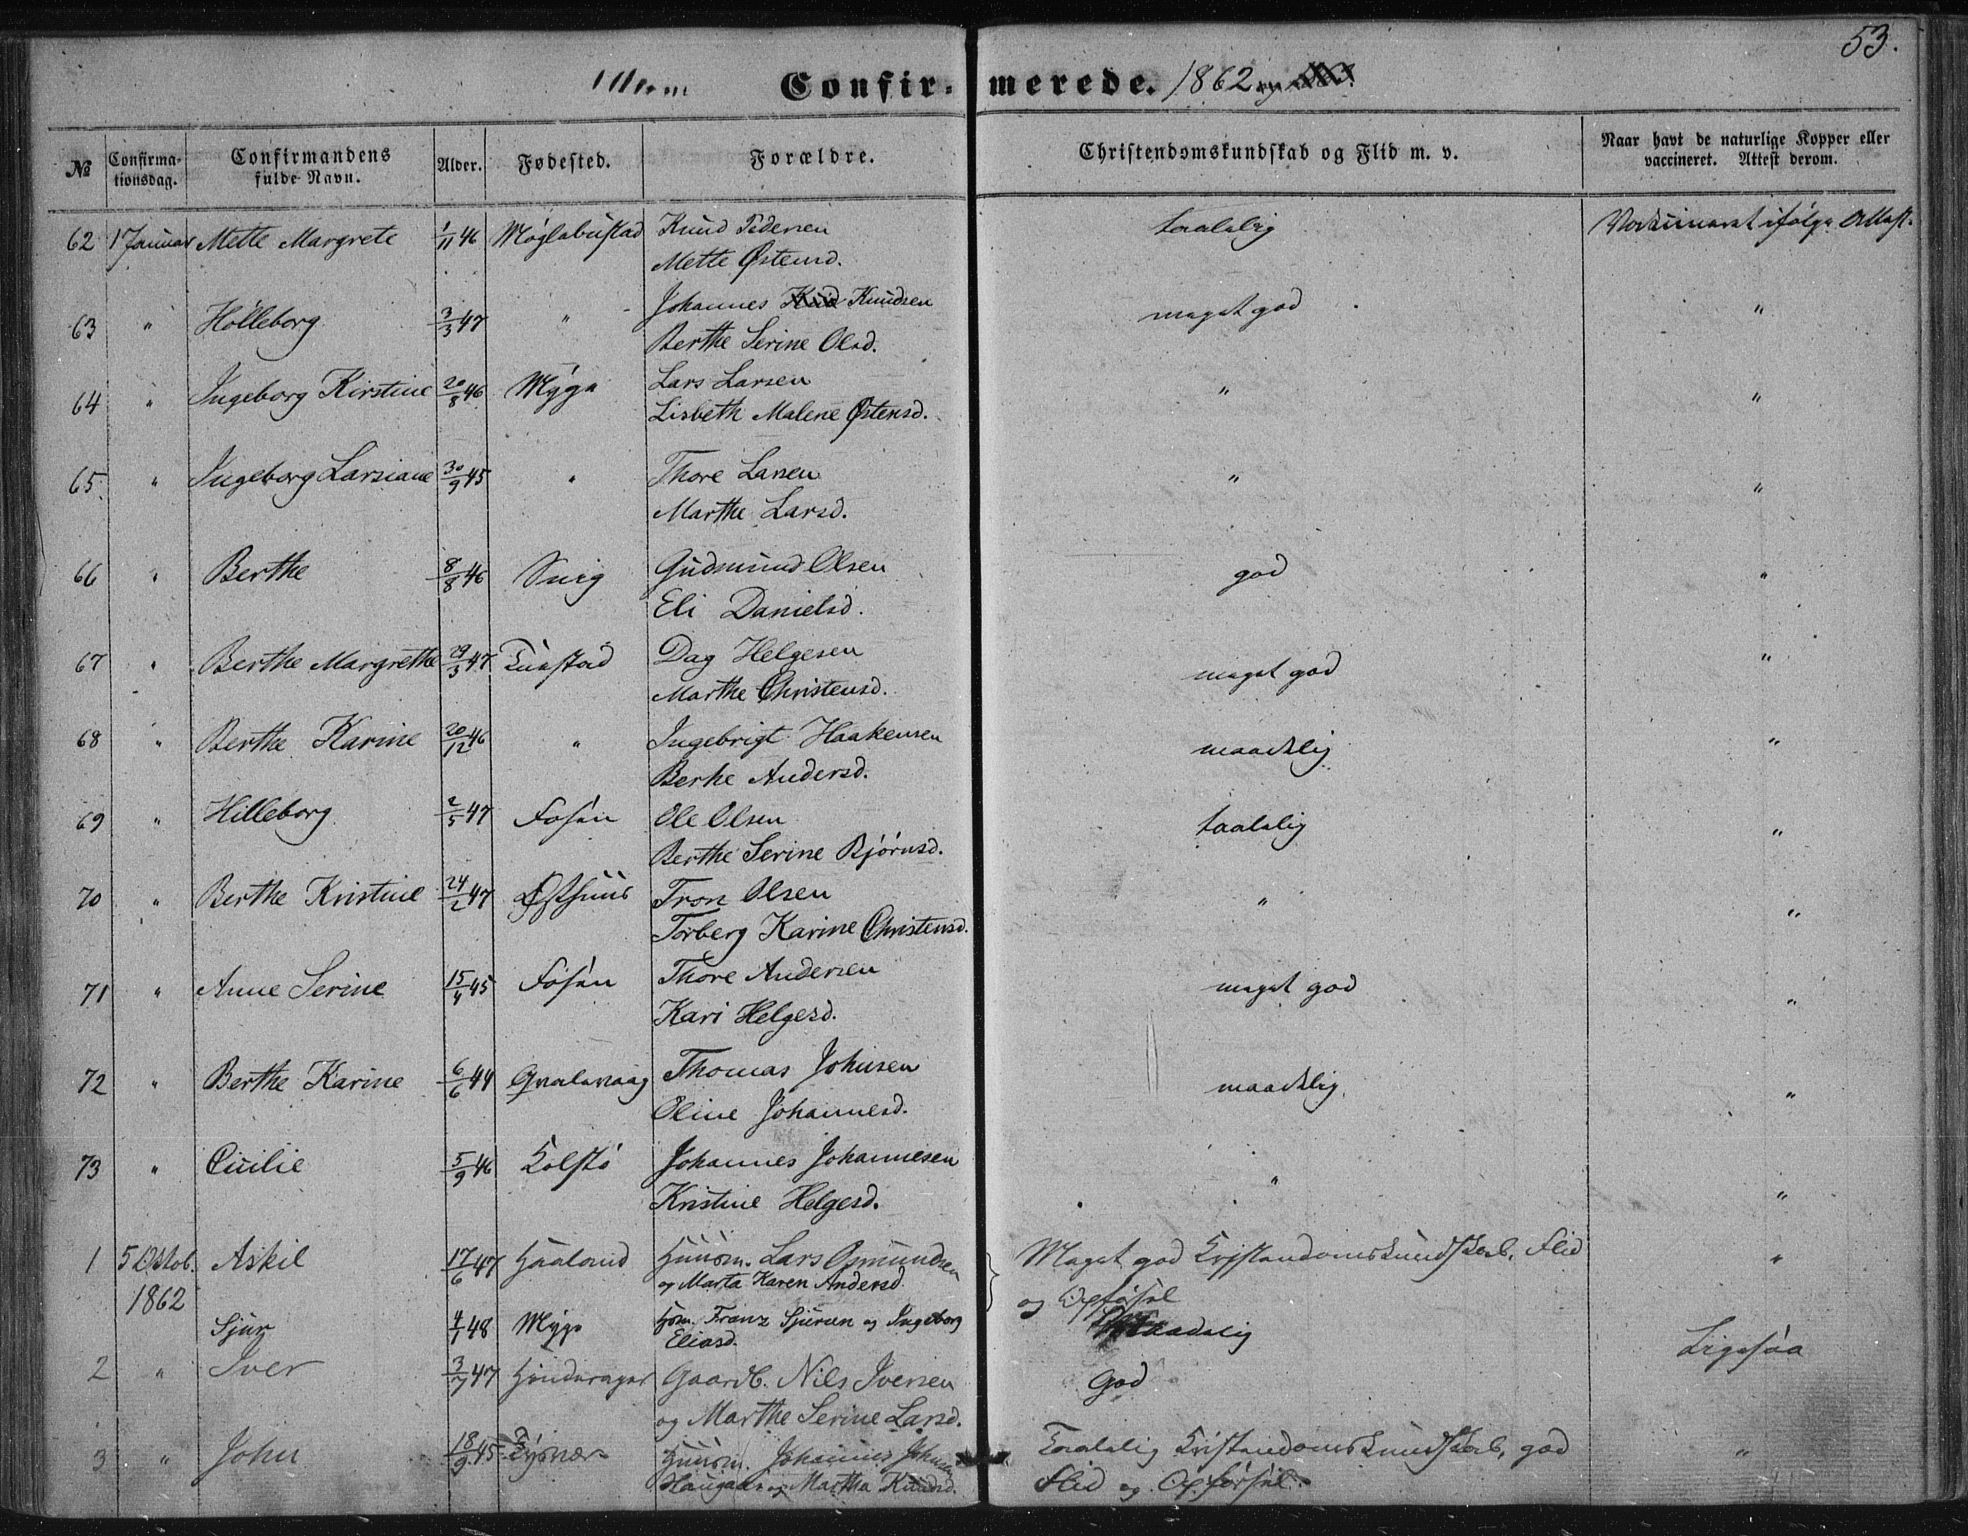 53.
Confirmerede. 1862
№ Confirmationsdag. Confirmandens fulde Navn. Alder. Fødested. Forældre. Christendomskundskab og Flid m. v. Naar havt de naturlige Kopper eller vaccineret. Attest derom.
62 1 Januar Mette Margrete 1/11 46 Knud Pedersen taalelig Vaksineret ifølge Attest.
Mette Østensd.
63 " Hølleborg 3/3 47 " Johannes Knudsen meget god "
Berthe Serine Olsd.
64 " Ingeborg Kirstine 20/8 46 Myge Lars Larsen " "
Lisbeth Malene Østensd.
65. " Ingeborg Larsiane 30/9 45 " Thore Larsen " "
Marthe Larsd.
66 " Berthe 8/8 46 Gudmund Olsen god "
Eli Danielsd.
67 " Berthe Margrethe 29/3 47 Dag Helgesen meget god "
Marthe Christensd.
68 " Berthe Karine 20/12 46 " Ingebrigt Haakensen maadelig "
Berhe Andersd.
69 " Hilleborg 2/5 47 Fosen Ole Olsen taalelig "
Berthe Serine Bjørnsd.
70 " Berthe Kristine 24/2 47 Østhuus Tron Olsen " "
Torberg Karine Christensd.
71 " Anne Serine 15/4 45 Fosen Thore Andersen meget god "
Kari Helgesd.
72 " Berthe Karine 6/6 44 Qvalavaag Thomas Johnsen maadelig "
Oline Johannesd.
73 " Cicilie 5/9 46 Kolstø Johannes Johannesen " "
Kristine Helgesd.
1 5 Oktob. Askil 17/6 47 Haaland Huusm. Lars Osmundsen Meget god Kristendomskundskab, Flid "
1862 og Marta Karen Andersd. og Opførsel
Sjur 4/1 48 Myge Huusm. Franz Sjursen og Ingeborg Maadelig
Eliasd. Ligesaa
2 " Iver 3/7 47 Gaardb. Nils Iversen God
og Marthe Serine Larsd.
3 " John 18/9 45 Huusm. Johannes Johnsen Taalelig Kristendomskundskab, god "
og Martha Knudsd. Flid og Opførsel.